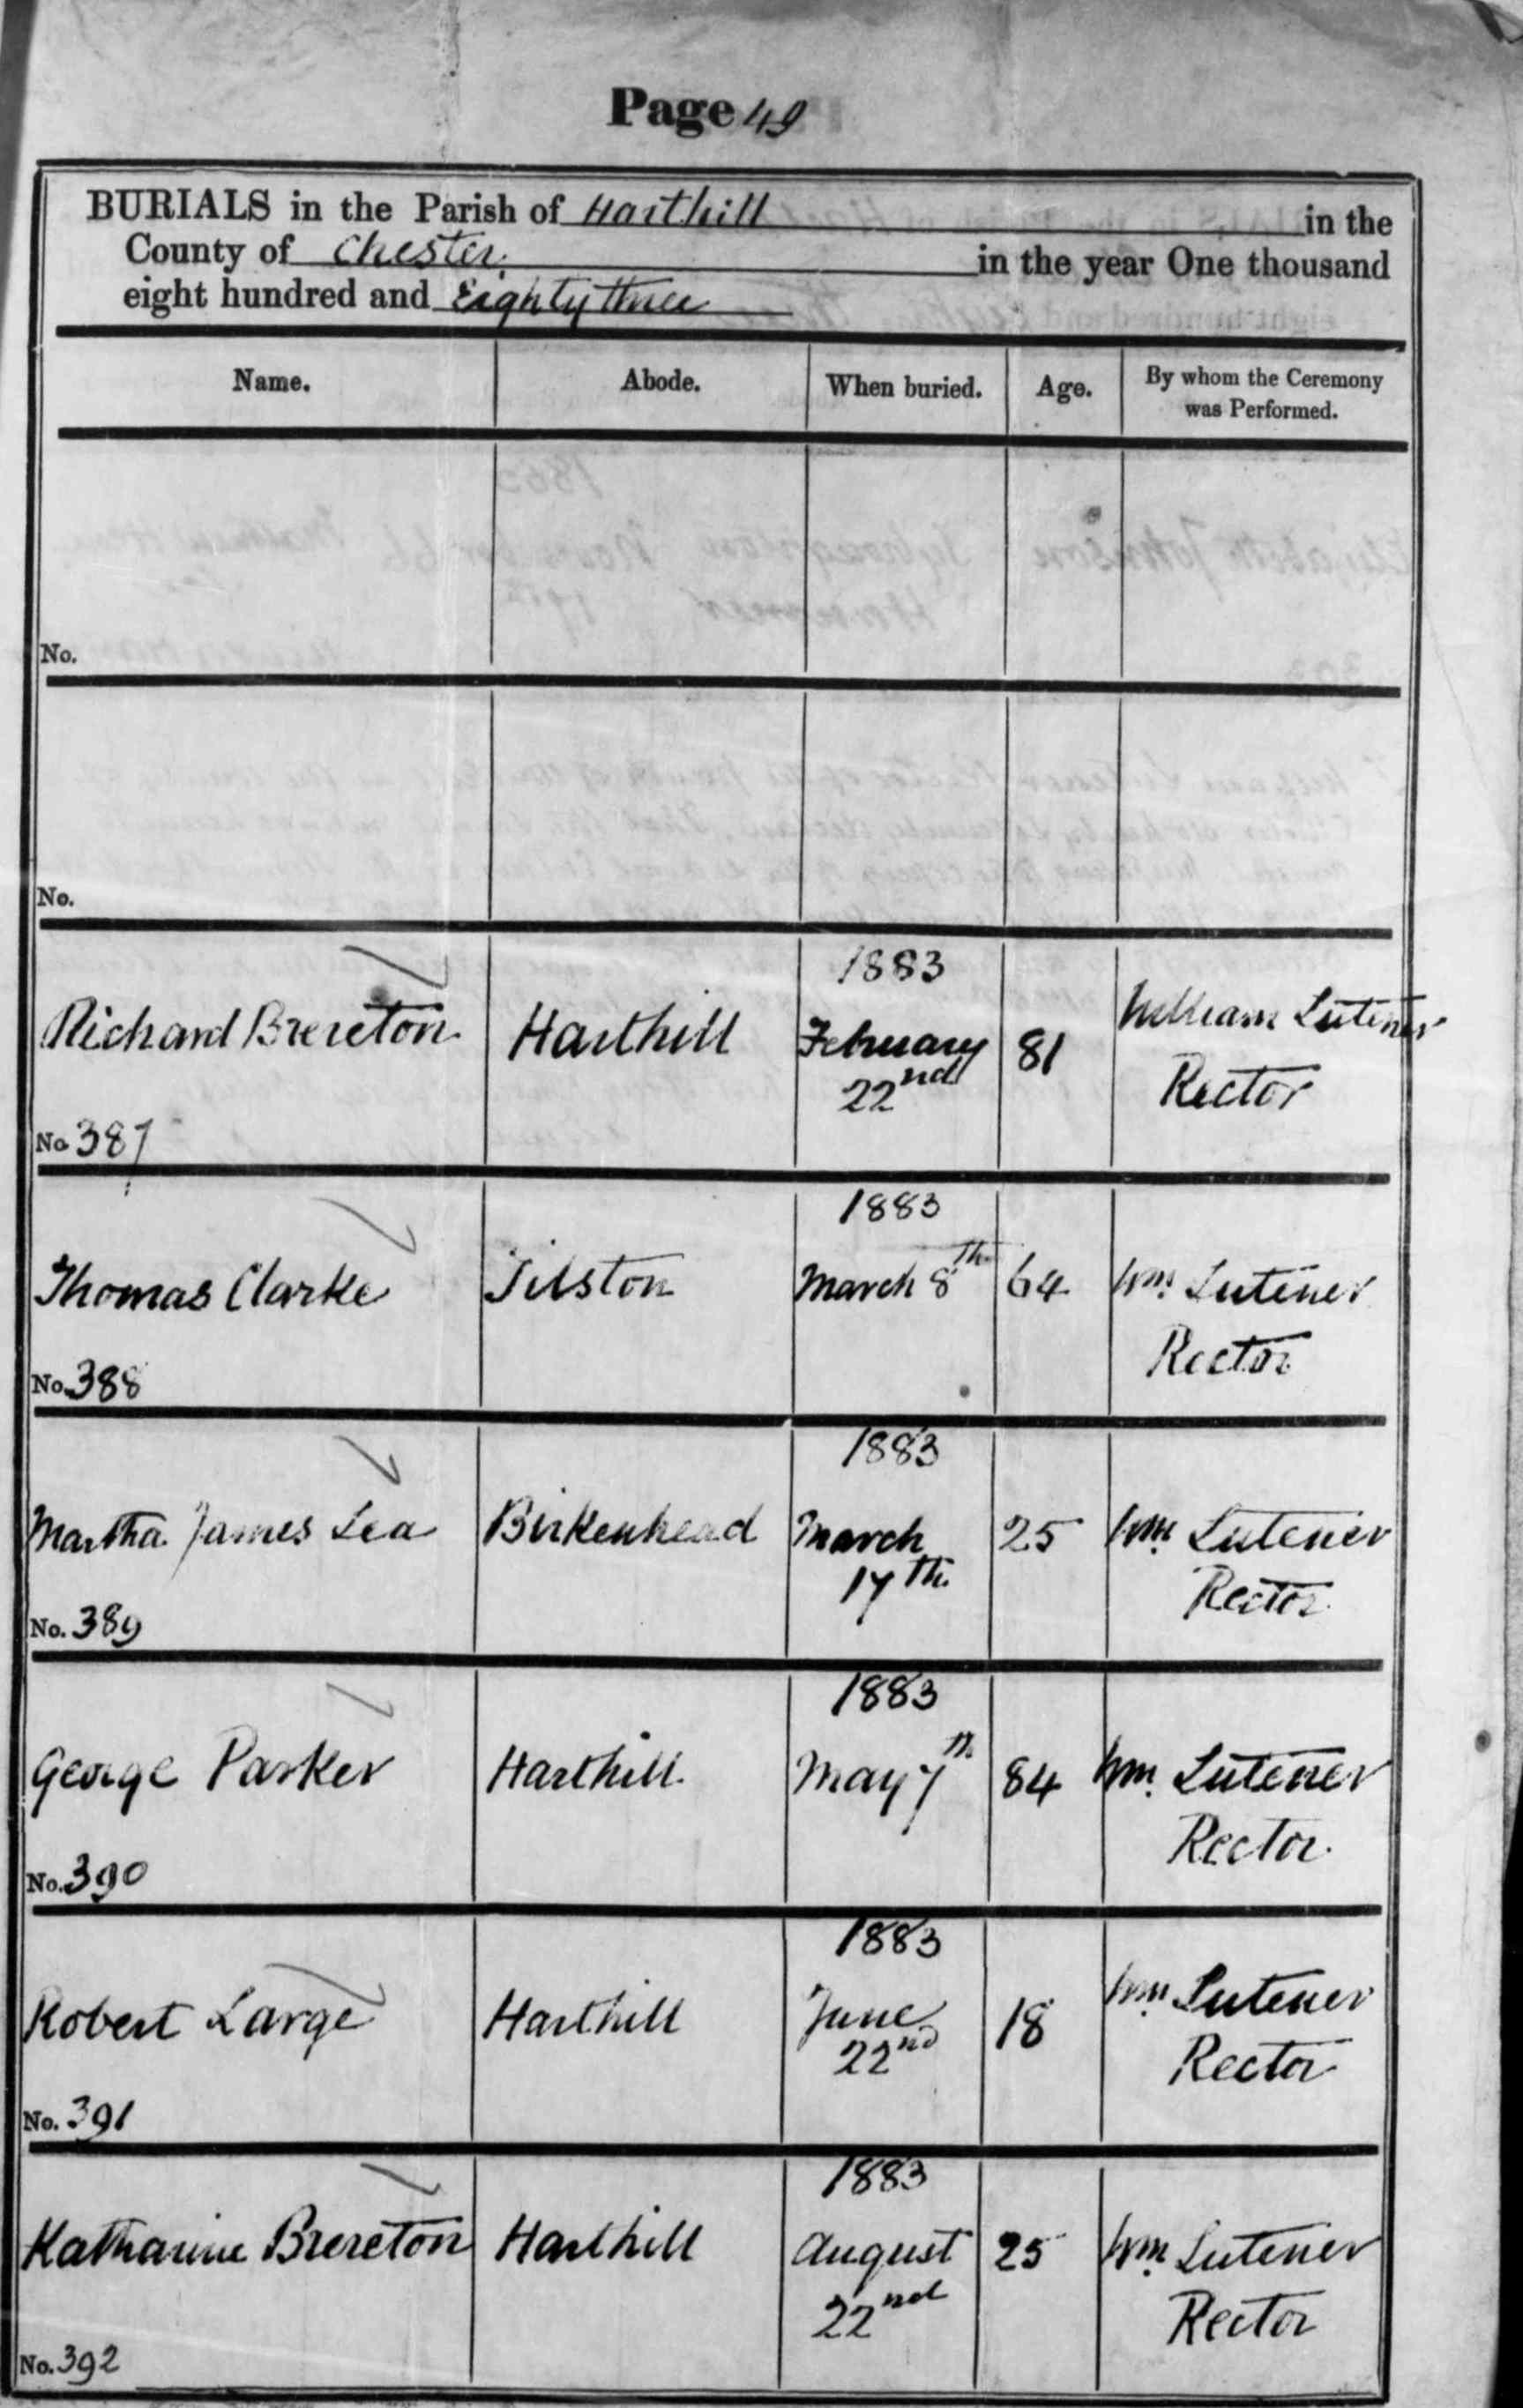 Page 49
BURIALS in the Parish of Harthill in the
County of Chester. in the year One thousand
eight hundred and Eighty three
Name. Abode. When buried. Age. By whom the Ceremony was Performed.
No.
No.
1883
Richard Brereton Harthill February 81 William Lutener
22nd Rector
No 387
1883
Thomas Clarke Tilston March 8th 64 Wm. Lutener
Rector
No. 388
1883
Martha James Lea Birkenhead March 25 Wm. Lutener
17th. Rector
No. 389
1883
George Parker Harthill. May 7th 84 Wm. Lutener
Rector.
No. 390
1883
Robert Large Harthill June 18 Wm. Lutener
22nd Rector
No. 391
1883
Katharine Brereton Harthill August 25 Wm. Lutener
22nd Rector
No. 392